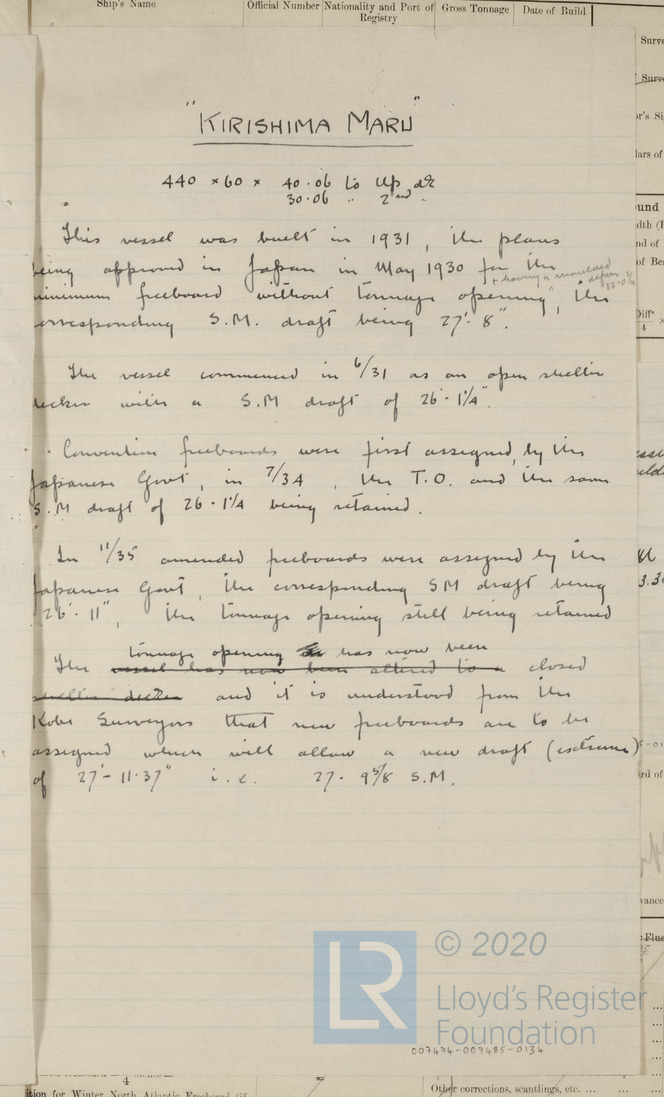 Ship's Name
Official Number
Nationality and Port of
Registry
Gross Tonnage
Date of Build
"KIRISHIMA MARU"
440 × 60 × 40.06 to Up dk
30.06 " 2nd "
This vessel was built in 1931, the plans
being approved in Japan in May 1930 for the
+ having a moulded
minimum freeboard "without tonnage opening", the
corresponding S.M. draft being 27'-8".
The vessel commenced in 6/31 as an open shelter
decker with a S.M draft of 26'-1¼".
Convention freeboards were first assigned, by the
Japanese Govt, in 7/34, the T.O. and the same
S.M draft of 26-1¼ being retained.
In 11/35 amended freeboards were assigned by the
Japanese Govt, the corresponding SM draft being
26'-11", the tonnage opening still being retained
tonnage opening has now been
The vessel has now been altered to a closed
shelter decker and it is understood from the
Kobe Surveyors that new freeboards are to be
assigned which will allow a new draft (extreme)
of 27'-11.37" i.e. 27-9⅝ S.M.
© 2020
LR
Lloyd's Register
Foundation
007474-007485-0134
4
ition for Winter North Atlantic Freeboard (if
Other corrections, scantlings, etc. ...